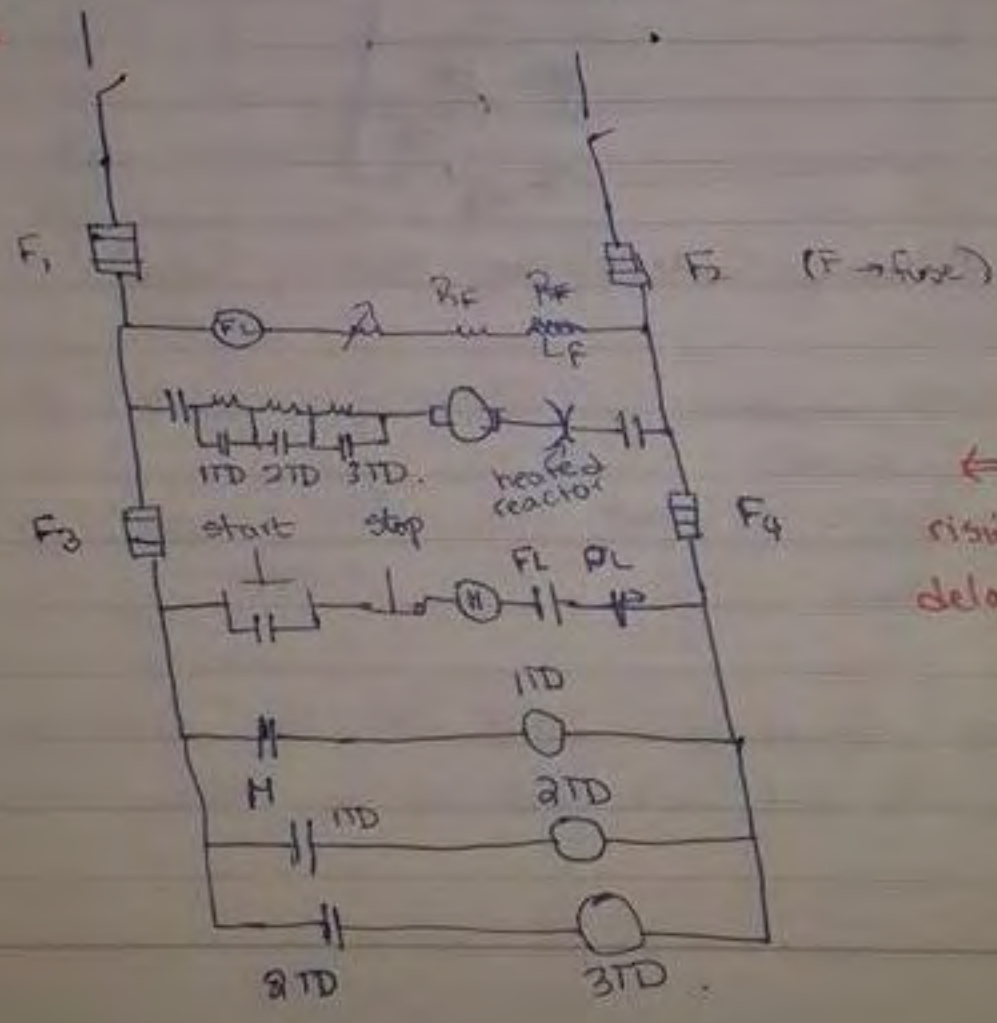 F1 F2 (F → fuse)
FL RF RF
LF
1TD 2TD 3TD.
heated
reactor
F3 start stop F4
FL
M
1TD
M
2TD
1TD
2TD
3TD.